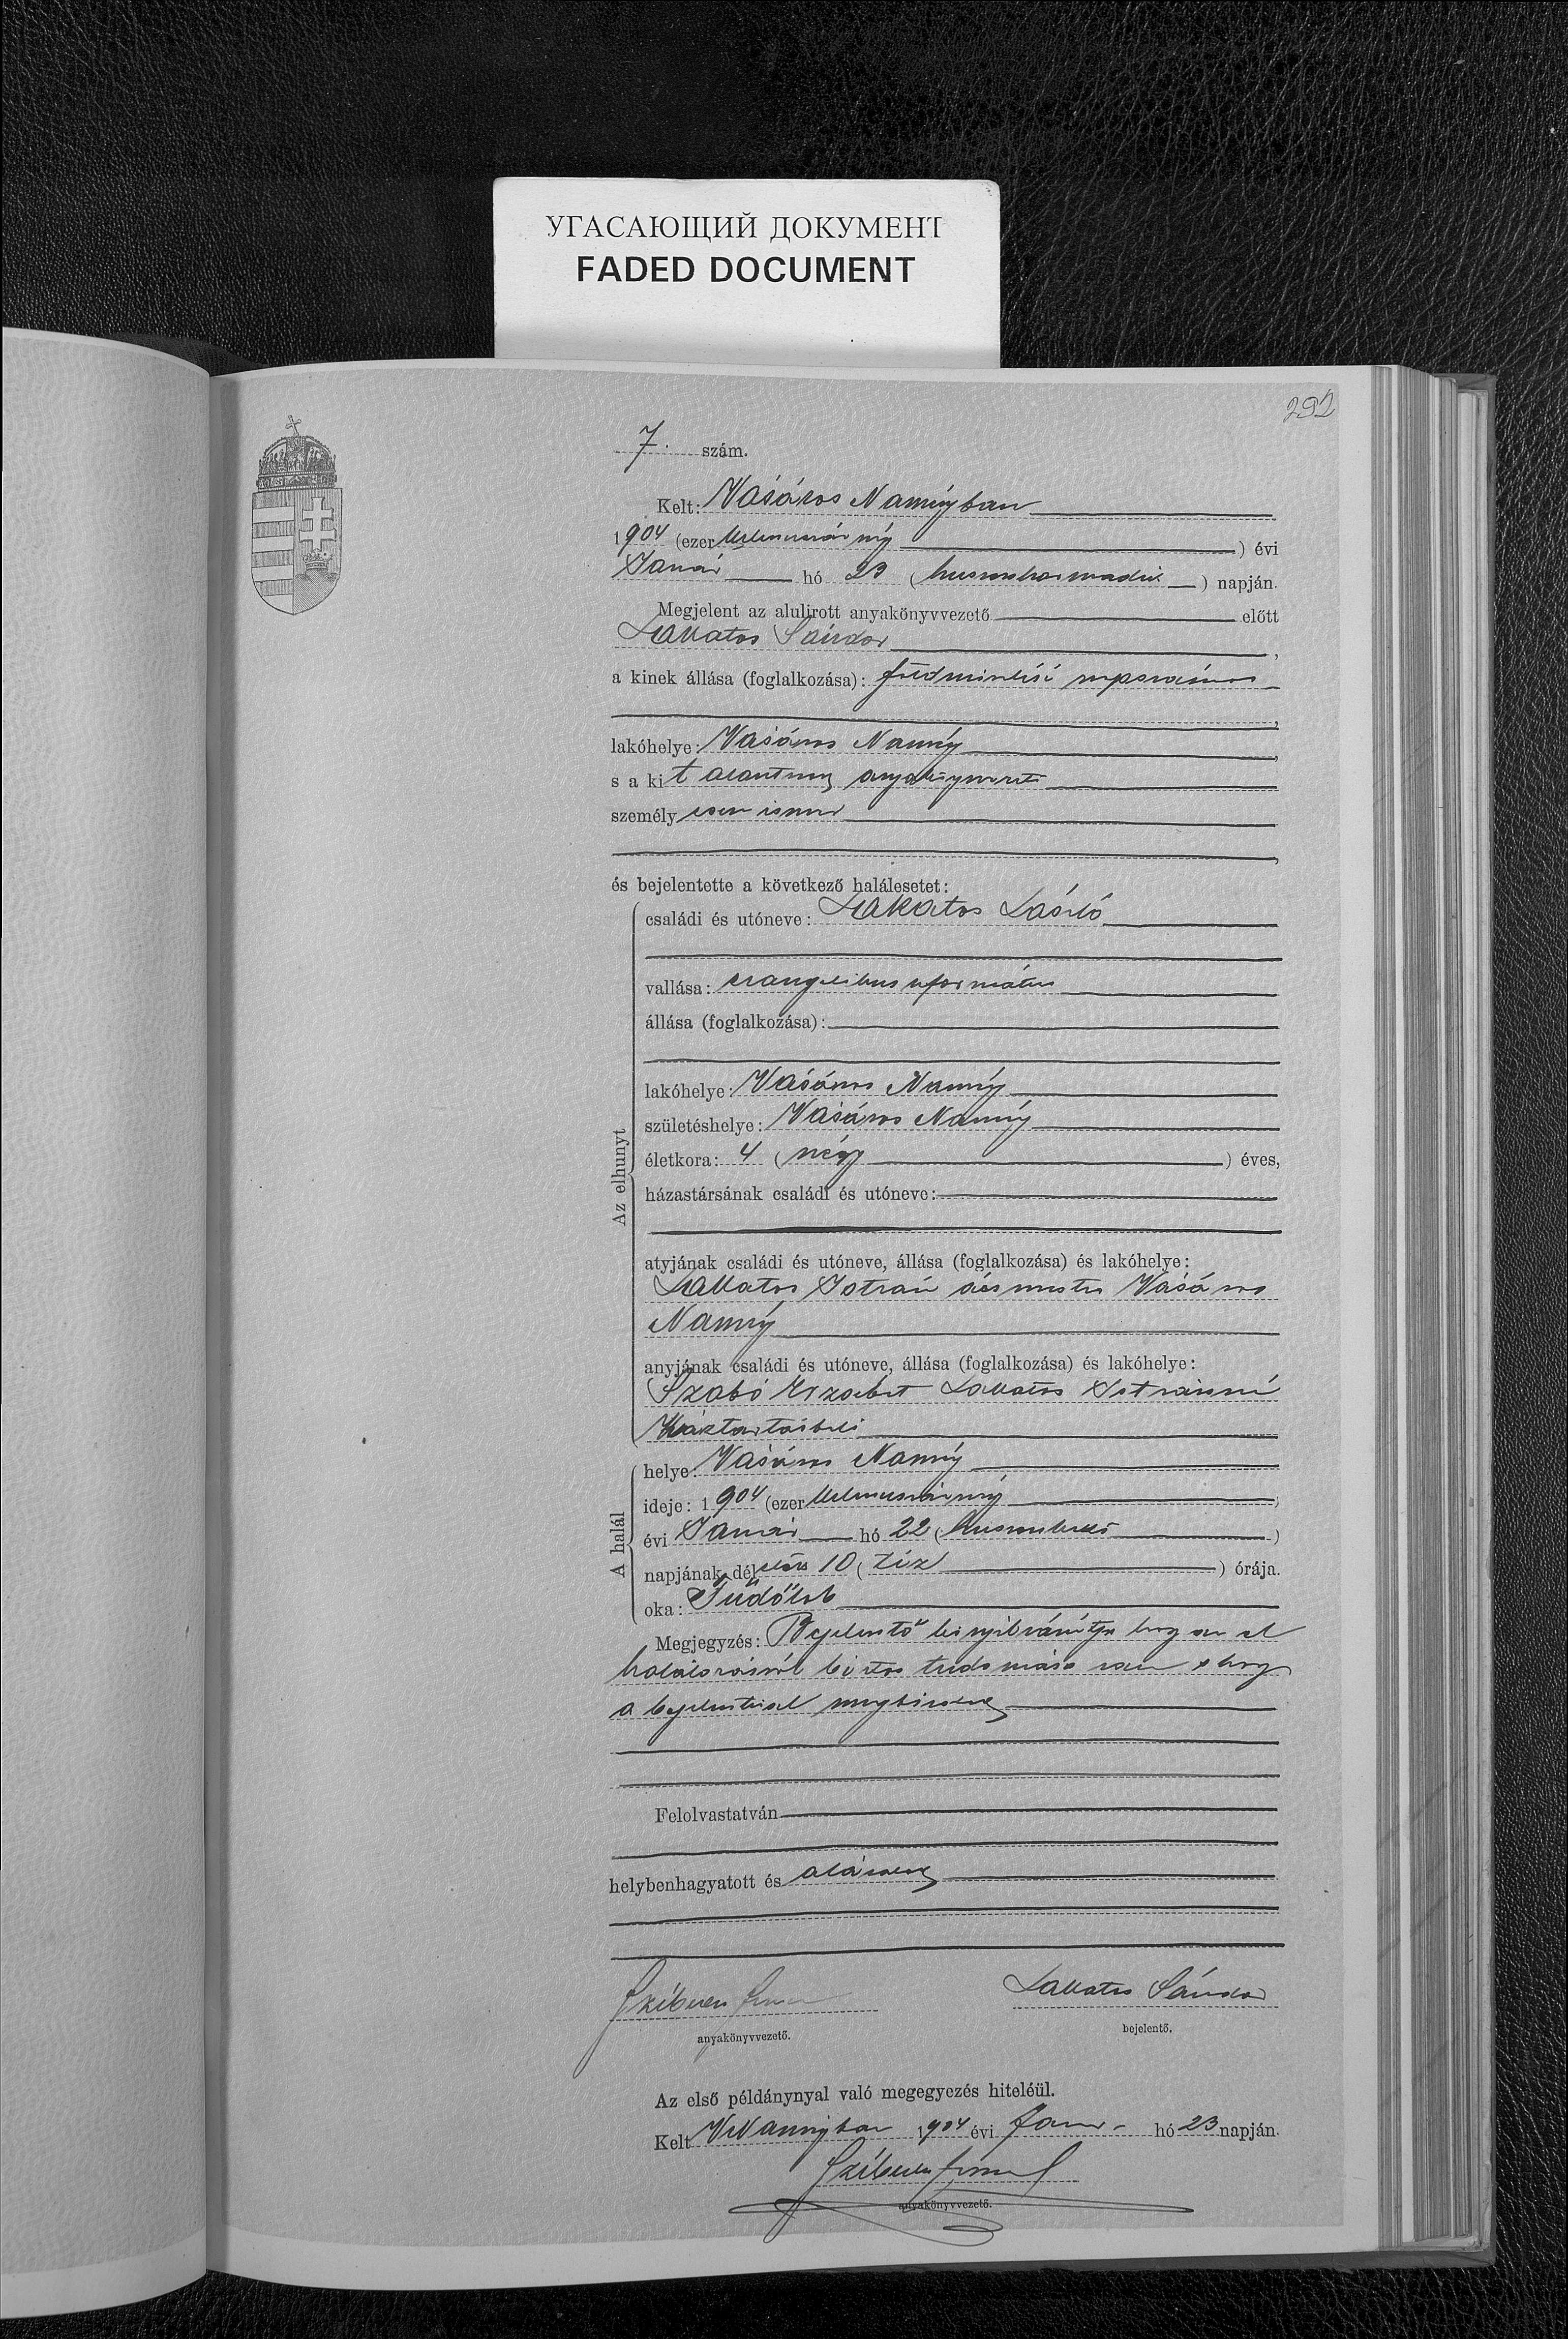 УГАСАЮЩИЙ ДОКУМЕНТ
FADED DOCUMENT
292
7. szám.
Kelt: Vásáros Naményban
1904 (ezer kilenczszáz négy) évi
Január hó 23 (huszonharmadik) napján.
Megjelent az alulirott anyakönyvvezető előtt
Lakatos Sándor,
a kinek állása (foglalkozása): földmivelési napszámos
lakóhelye: Vásáros Namény,
s a kit alantirott anyakönyvvezető
személyesen ismer
és bejelentette a következő halálesetet:
Az elhunyt
családi és utóneve: Lakatos László
vallása: evangelikus református
állása (foglalkozása):
lakóhelye: Vásáros Namény
születéshelye: Vásáros Namény
életkora: 4 (négy) éves,
házastársának családi és utóneve:
atyjának családi és utóneve, állása (foglalkozása) és lakóhelye:
Lakatos István ácsmester Vásáros
Namény
anyjának családi és utóneve, állása (foglalkozása) és lakóhelye:
Szabó Erzsébet Lakatos Istvánné
háztartásbeli
A halál
helye: Vásáros Namény
ideje: 1904 (ezer kilenczszáz négy)
évi Január hó 22 (huszonkettő)
napjának délelőtt 10 (tíz) órája.
oka: Tüdőlob
Megjegyzés: Bejelentő kinyilvánítja hogy az el
halálozásról biztos tudomása van s hogy
a bejelentéssel megbízatott
Felolvastatván
helybenhagyatott és aláiratott
Lakatos Sándor
anyakönyvvezető.
bejelentő.
Az első példánynyal való megegyezés hiteléül.
Kelt V Naményban 1904 évi Janu hó 23 napján.
anyakönyvvezető.